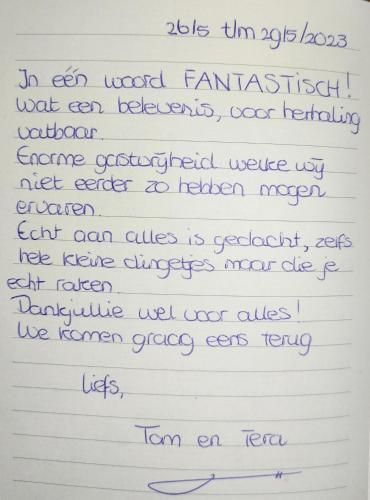 26/5 t/m 29/5/2023
In één woord FANTASTISCH!
Wat een belevenis, voor herhaling
vatbaar.
Enorme gastvrijheid welke wij
niet eerder zo hebben mogen
ervaren.
Echt aan alles is gedacht, zelfs
hele kleine dingetjes maar die je
echt raken.
Dankjullie wel voor alles!
We komen graag eens terug
Liefs,
Tom en Tera